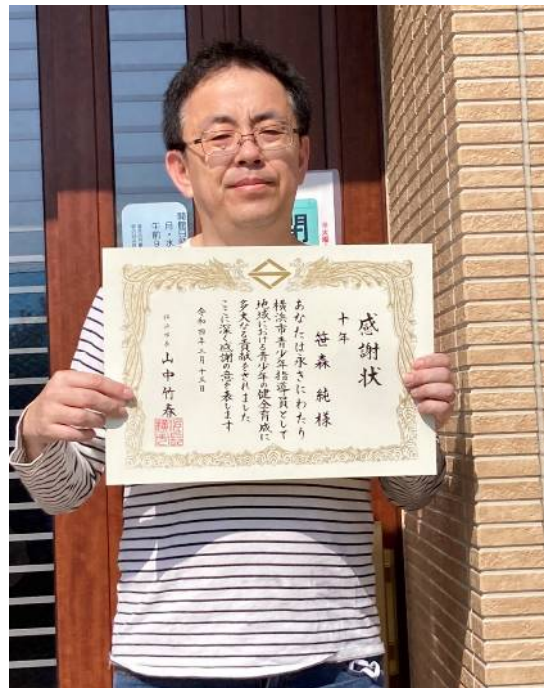 感謝状
十年
笹森純様
あなたは永きにわたり
横浜市青少年指導員として
地域における青少年の健全育成に
多大なる貢献をされました
ここに深く感謝の意を表します
令和四年三月十三日
横浜市長 山中竹春
開館日
月・水
午前9
開